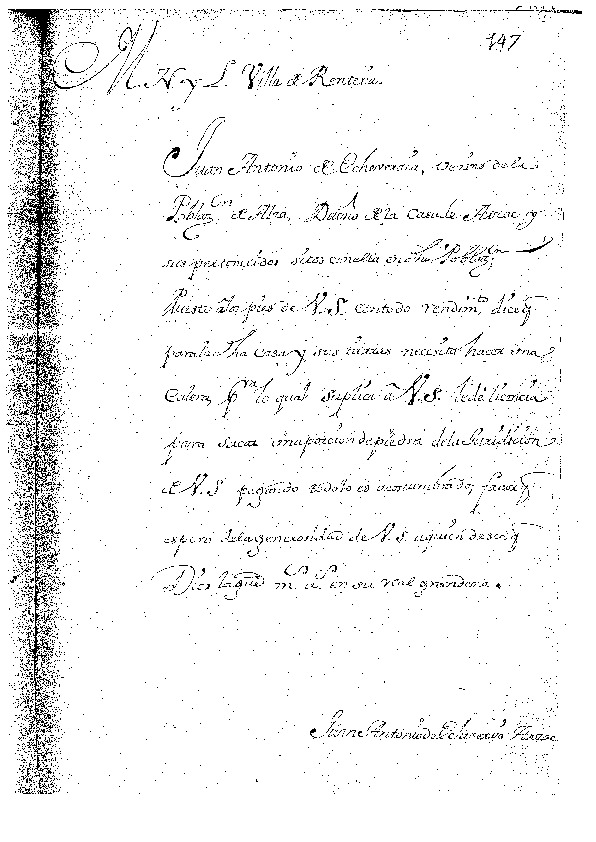 147
M. N. y L. Villa de Rentería.
Juan Antonio de Echeverria, vecino de la
Poblaz.on de Alza, Dueño de la Casa de Arzac y
sus pertenecidos sitos en ella en dha Poblaz.on
Puesto a los pies de V.S. con todo rendim.to dice q
para la dha Casa y sus tierras necesita hacer una
Calera, p.ra lo qual suplica â V.S. le dé licencia
para sacar una porcion de piedra de la Jurisdicion
de V.S. pagando todo lo acostumbrado, favor q
espera de la generosidad de V.S. a quien desea q
Dios la gũe m.s a.s en su real grandeza.
Juan Antonio de Echeverria Arzac